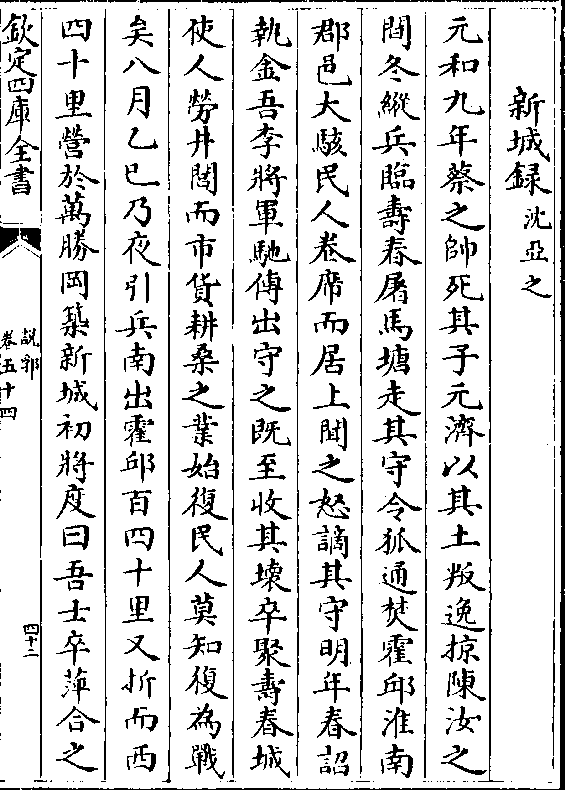 新城録 沈亞之
元和九年蔡之帥死其子元濟以其土叛逸掠陳汝之
間冬縱兵臨壽春屠馬塘走其守令狐通焚霍邱淮南
郡邑大駭民人卷席而居上聞之怒謫其守明年春詔
執金吾李將軍馳傳出守之既至收其壊卒聚壽春城
使人勞井閭而市貨耕桑之業始復民人莫知復為戰
矣八月乙巳乃夜引兵南出霍邱百四十里又折而西
四十里營於萬勝岡築新城初將度曰吾士卒萍合之
欽定四庫全書
說郛
卷五十四
四十二